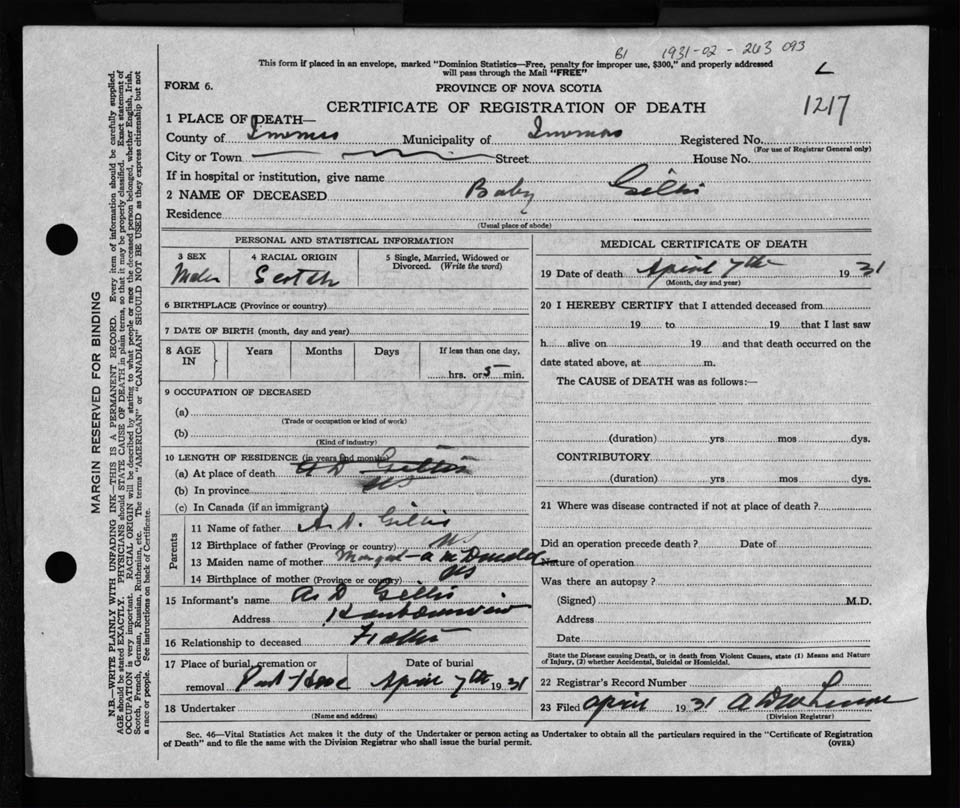 B1 1931-02-263 093
This form if placed in an envelope, marked "Dominion Statistics—Free, penalty for improper use, $300," and properly addressed
will pass through the Mail "FREE"
L
FORM 6.
PROVINCE OF NOVA SCOTIA
CERTIFICATE OF REGISTRATION OF DEATH
1217
1 PLACE OF DEATH—
County of Inverness Municipality of Inverness Registered No.
(For use of Registrar General only)
City or Town Street House No.
If in hospital or institution, give name
2 NAME OF DECEASED Baby Gillis
Residence
(Usual place of abode)
PERSONAL AND STATISTICAL INFORMATION
3 SEX 4 RACIAL ORIGIN 5 Single, Married, Widowed or
Divorced. (Write the word)
Male Scotch
6 BIRTHPLACE (Province or country)
7 DATE OF BIRTH (month, day and year)
8 AGE IN Years Months Days If less than one day,
hrs. or 5 min.
9 OCCUPATION OF DECEASED
(a)
(Trade or occupation or kind of work)
(b)
(Kind of industry)
10 LENGTH OF RESIDENCE (in years and months)
(a) At place of death A D Gillis
(b) In province NS
(c) In Canada (if an immigrant)
Parents
11 Name of father A. D. Gillis
12 Birthplace of father (Province or country) NS
13 Maiden name of mother McDonald
14 Birthplace of mother (Province or country) NS
15 Informant's name A D Gillis
Address
16 Relationship to deceased Father
17 Place of burial, cremation or Date of burial
removal Port Hood April 7th 1931
18 Undertaker
(Name and address)
MEDICAL CERTIFICATE OF DEATH
19 Date of death April 7th 1931
(Month, day and year)
20 I HEREBY CERTIFY that I attended deceased from
19 to 19 that I last saw
h alive on 19 and that death occurred on the
date stated above, at m.
The CAUSE of DEATH was as follows:—
(duration) yrs mos dys.
CONTRIBUTORY
(duration) yrs mos dys.
21 Where was disease contracted if not at place of death?
Did an operation precede death? Date of
Nature of operation
Was there an autopsy?
(Signed) M.D.
Address
Date
State the Disease causing Death, or in death from Violent Causes, state (1) Means and Nature
of Injury, (2) whether Accidental, Suicidal or Homicidal.
22 Registrar's Record Number
23 Filed April 1931
(Division Registrar)
Sec. 46—Vital Statistics Act makes it the duty of the Undertaker or person acting as Undertaker to obtain all the particulars required in the "Certificate of Registration
of Death" and to file the same with the Division Registrar who shall issue the burial permit. (OVER)
MARGIN RESERVED FOR BINDING
N.B.—WRITE PLAINLY WITH UNFADING INK—THIS IS A PERMANENT RECORD. Every item of information should be carefully supplied.
AGE should be stated EXACTLY. PHYSICIANS should STATE CAUSE OF DEATH in plain terms, so that it may be properly classified. Exact statement of
OCCUPATION is very important. RACIAL ORIGIN will be described by stating to what people or race the deceased person belonged, whether English, Irish,
Scotch, French, German, Russian, Ruthenian, etc. The terms "AMERICAN" or "CANADIAN" SHOULD NOT BE USED as they express citizenship but not
a race or people. See instructions on back of Certificate.